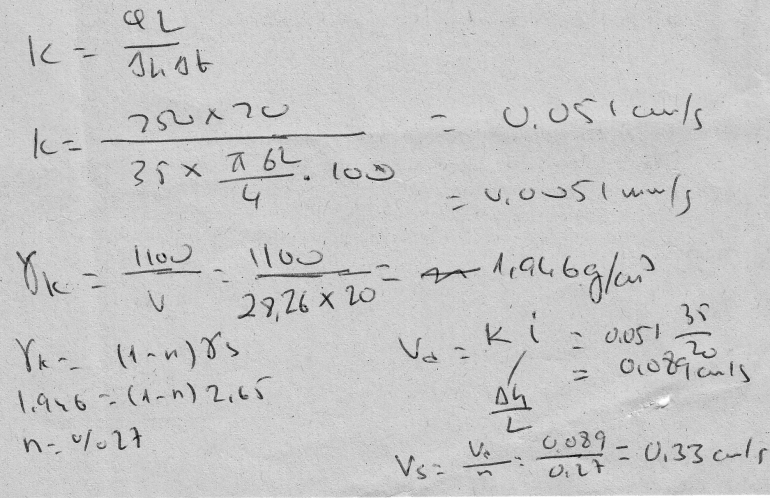 k = QL / Δh A t
k = 250 x 20 / 35 x π 6² / 4 . 100 = 0.051 cm/s
= 0.0051 mm/s
γk = 1100 / V = 1100 / 28,26 x 20 = 1,946 g/cm³
γk = (1-n) γs
1.946 = (1-n) 2,65
n = %27
Vd = k i = 0.051 35 / 20
Δh / L
= 0.089 cm/s
Vs = Vd / n = 0.089 / 0.27 = 0,33 cm/s